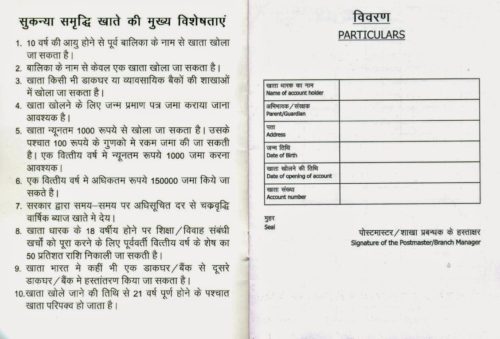 सुकन्या समृद्धि खाते की मुख्य विशेषताएं
1. 10 वर्ष की आयु होने से पूर्व बालिका के नाम से खाता खोला
जा सकता है।
2. बालिका के नाम से केवल एक खाता खोला जा सकता है।
3. खाता किसी भी डाकघर या व्यावसायिक बैंकों की शाखाओं
में खोला जा सकता है।
4. खाता खोलने के लिए जन्म प्रमाण पत्र जमा कराया जाना
आवश्यक है।
5. खाता न्यूनतम 1000 रूपये से खोला जा सकता है। उसके
पश्चात 100 रूपये के गुणको मे रकम जमा की जा सकती
है। एक वित्तीय वर्ष मे न्यूनतम रूपये 1000 जमा करना
आवश्यक।
6. एक वित्तीय वर्ष मे अधिकतम रूपये 150000 जमा किये जा
सकते है।
7. सरकार द्वारा समय-समय पर अधिसूचित दर से चक्रवृद्धि
वार्षिक ब्याज खाते मे देय।
8. खाता धारक के 18 वर्षीय होने पर शिक्षा/विवाह संबंधी
खर्चो को पूरा करने के लिए पूर्ववर्ती वित्तीय वर्ष के शेष का
50 प्रतिशत राशि निकाली जा सकती है।
9. खाता भारत मे कहीं भी एक डाकघर/बैंक से दूसरे
डाकघर/बैंक मे हस्तांतरण किया जा सकता है।
10. खाता खोले जाने की तिथि से 21 वर्ष पूर्ण होने के पश्चात
खाता परिपक्व हो जाता है।
विवरण
PARTICULARS
खाता धारक का नाम
Name of account holder
अभिभावक/संरक्षक
Parent/Guardian
पता
Address
जन्म तिथि
Date of Birth
खाता खोलने की तिथि
Date of opening of account
खाता संख्या
Account number
मुहर
Seal
पोस्टमास्टर/शाखा प्रबन्धक के हस्ताक्षर
Signature of the Postmaster/Branch Manager